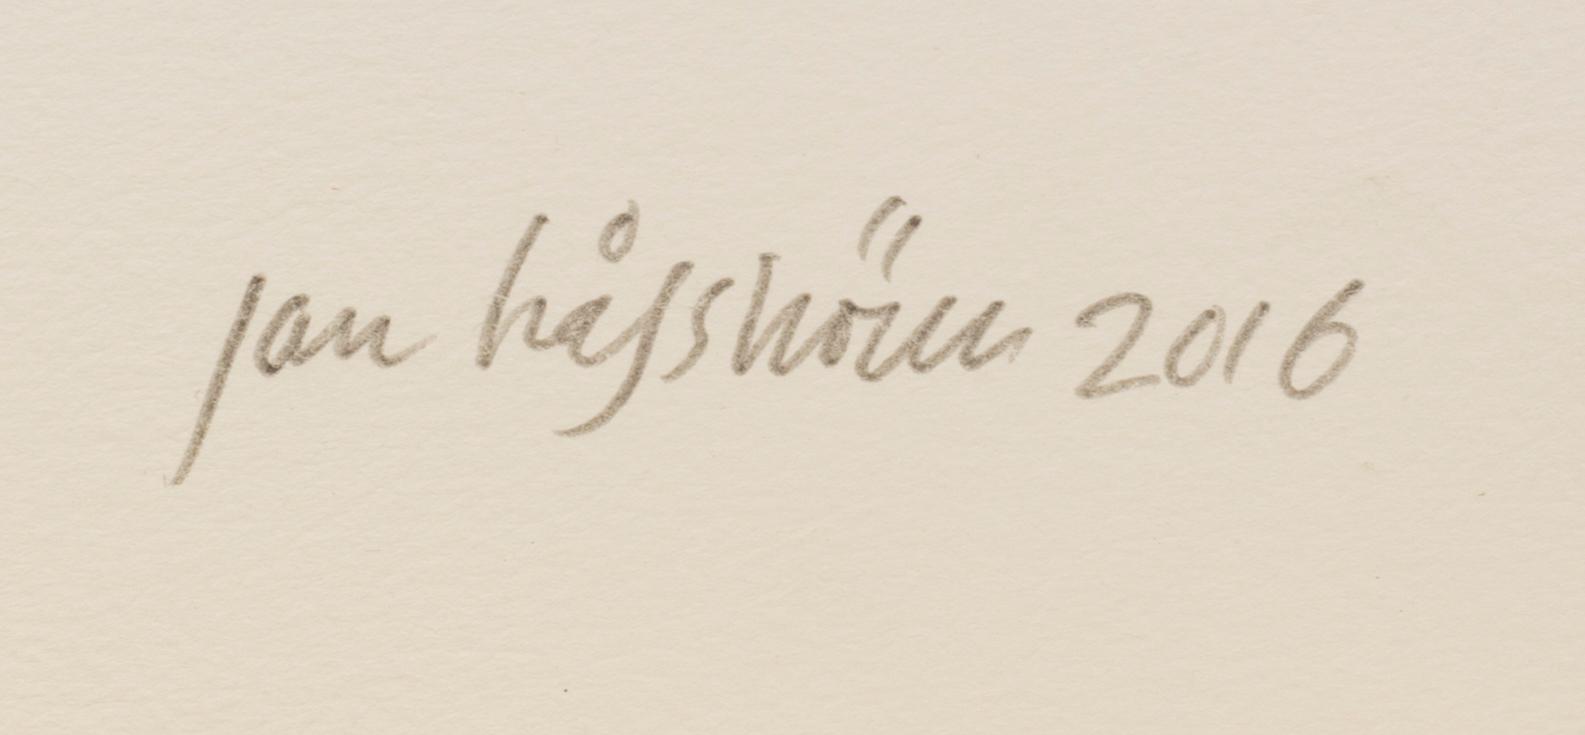 jan håfström 2016